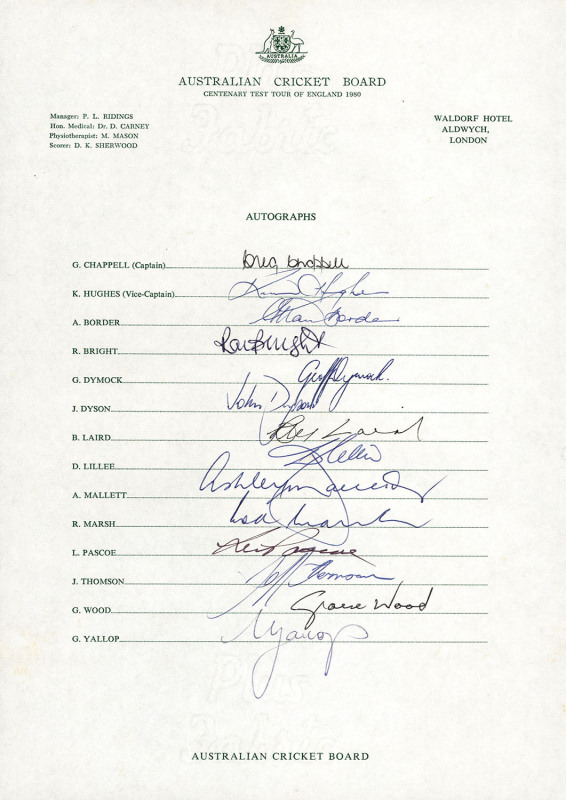 AUSTRALIA
AUSTRALIAN CRICKET BOARD
CENTENARY TEST TOUR OF ENGLAND 1980
Manager: P. L. RIDINGS
Hon. Medical: Dr. D. CARNEY
Physiotherapist: M. MASON
Scorer: D. K. SHERWOOD
WALDORF HOTEL
ALDWYCH,
LONDON
AUTOGRAPHS
G. CHAPPELL (Captain) Greg Chappell
K. HUGHES (Vice-Captain) Kim Hughes
A. BORDER Allan Border
R. BRIGHT Ray Bright
G. DYMOCK Geoff Dymock.
J. DYSON John Dyson
B. LAIRD Bruce Laird
D. LILLEE D Lillee
A. MALLETT Ashley Mallett
R. MARSH Rod Marsh
L. PASCOE Len Pascoe
J. THOMSON Jeff Thomson
G. WOOD Graeme Wood
G. YALLOP G Yallop
AUSTRALIAN CRICKET BOARD